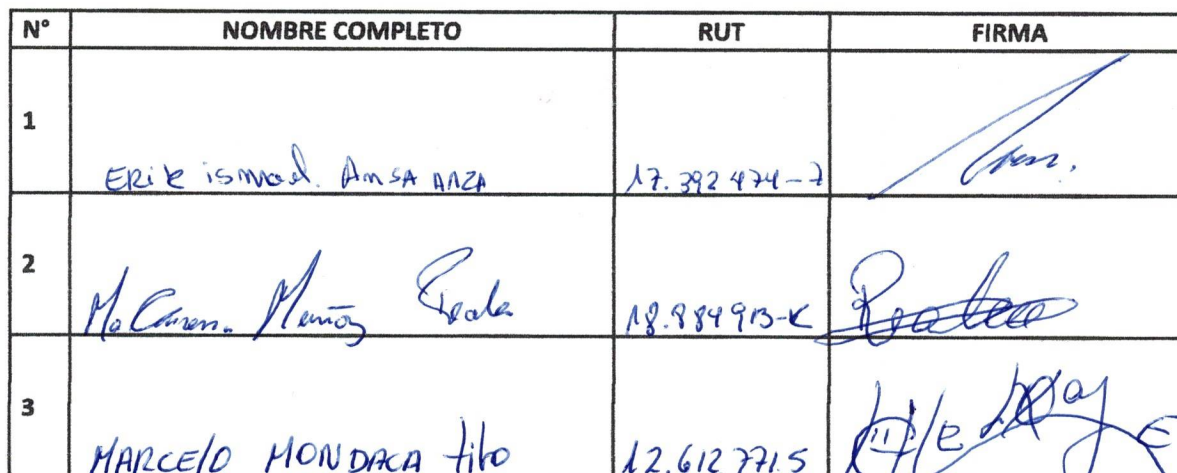 N° NOMBRE COMPLETO RUT FIRMA
1 ERiK ismael. AnsA 17.392474-7
2 Muñoz 18.884913-K
3 MARCElO MONDACA tito 12.612771.5